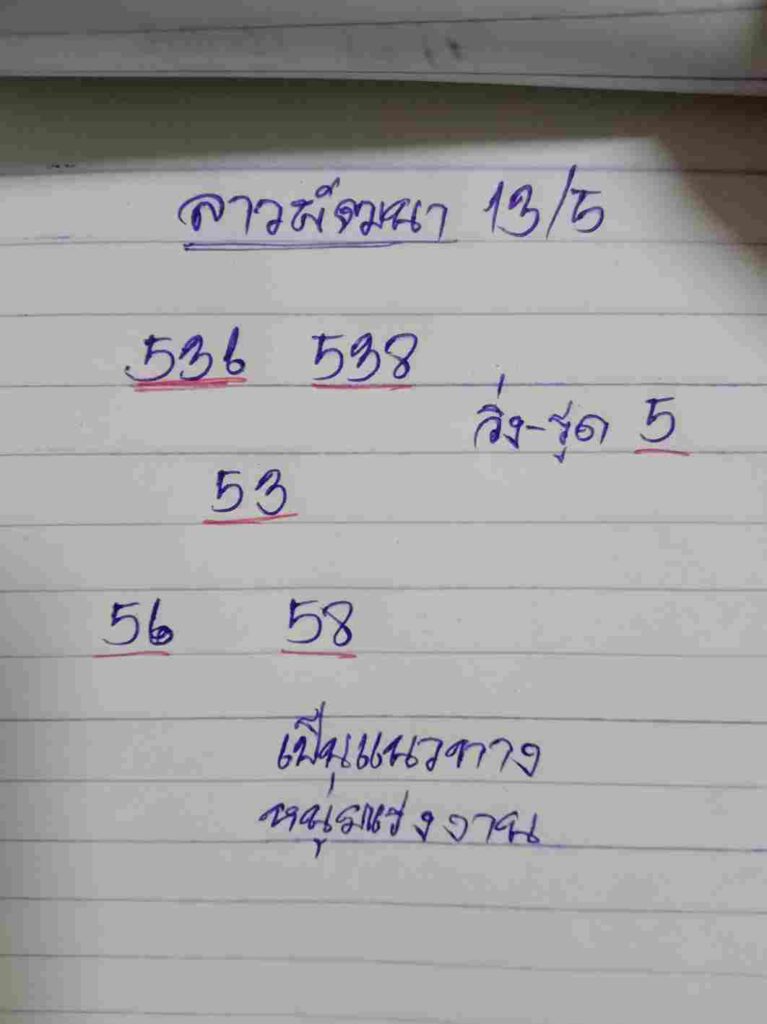 ลาวพัฒนา 13/5
536 538
วิ่ง-รูด 5
53
56 58
เป็นแนวทาง
หนุ่มแรงงาน